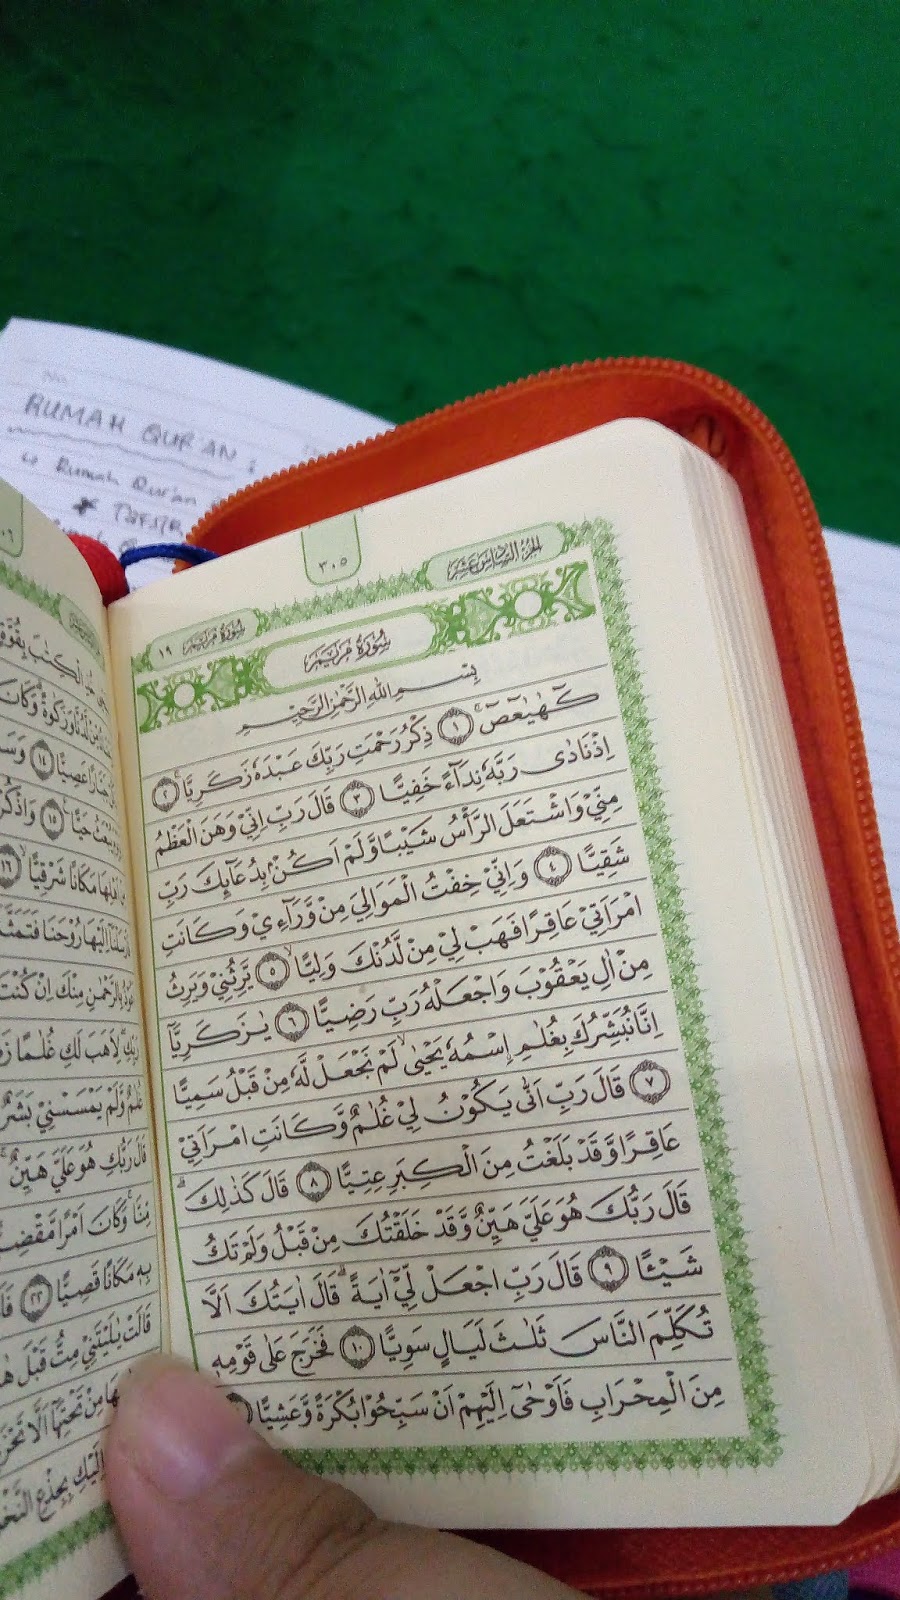 RUMAH QUR'AN :
Rumah Qur'an
TAFSIR
٣٠٥
الجزء السادس عشر
سورة مريم ١٩
سورة مريم
بِسْمِ اللّٰهِ الرَّحْمٰنِ الرَّحِيْمِ
كۤهٰيٰعۤصۤ ۚ ﴿١﴾ ذِكْرُ رَحْمَتِ رَبِّكَ عَبْدَهٗ زَكَرِيَّا ۚ ﴿٢﴾
اِذْ نَادٰى رَبَّهٗ نِدَاۤءً خَفِيًّا ﴿٣﴾ قَالَ رَبِّ اِنِّيْ وَهَنَ الْعَظْمُ
مِنِّيْ وَاشْتَعَلَ الرَّأْسُ شَيْبًا وَّلَمْ اَكُنْۢ بِدُعَاۤىِٕكَ رَبِّ
شَقِيًّا ﴿٤﴾ وَاِنِّيْ خِفْتُ الْمَوَالِيَ مِنْ وَّرَاۤءِيْ وَكَانَتِ
امْرَاَتِيْ عَاقِرًا فَهَبْ لِيْ مِنْ لَّدُنْكَ وَلِيًّا ۙ ﴿٥﴾ يَّرِثُنِيْ وَيَرِثُ
مِنْ اٰلِ يَعْقُوْبَ وَاجْعَلْهُ رَبِّ رَضِيًّا ﴿٦﴾ يٰزَكَرِيَّآ
اِنَّا نُبَشِّرُكَ بِغُلٰمِ ِۨاسْمُهٗ يَحْيٰىۙ لَمْ نَجْعَلْ لَّهٗ مِنْ قَبْلُ سَمِيًّا
﴿٧﴾ قَالَ رَبِّ اَنّٰى يَكُوْنُ لِيْ غُلٰمٌ وَّكَانَتِ امْرَاَتِيْ
عَاقِرًا وَّقَدْ بَلَغْتُ مِنَ الْكِبَرِ عِتِيًّا ﴿٨﴾ قَالَ كَذٰلِكَۗ
قَالَ رَبُّكَ هُوَ عَلَيَّ هَيِّنٌ وَّقَدْ خَلَقْتُكَ مِنْ قَبْلُ وَلَمْ تَكُ
شَيْـًٔا ﴿٩﴾ قَالَ رَبِّ اجْعَلْ لِّيْٓ اٰيَةً ۗقَالَ اٰيَتُكَ اَلَّا
تُكَلِّمَ النَّاسَ ثَلٰثَ لَيَالٍ سَوِيًّا ﴿١٠﴾ فَخَرَجَ عَلٰى قَوْمِهٖ
مِنَ الْمِحْرَابِ فَاَوْحٰٓى اِلَيْهِمْ اَنْ سَبِّحُوْا بُكْرَةً وَّعَشِيًّا
الْكِتٰبَ بِقُوَّةٍ
لَّدُنَّا وَزَكٰوةً ۗوَكَانَ
جَبَّارًا عَصِيًّا ﴿١٤﴾
حَيًّا ۚ ﴿١٥﴾ وَاذْكُرْ
مَكَانًا شَرْقِيًّا ۙ ﴿١٦﴾
اِلَيْهَا رُوْحَنَا فَتَمَثَّلَ
بِالرَّحْمٰنِ مِنْكَ اِنْ كُنْتَ
رَبِّكِۖ لِاَهَبَ لَكِ غُلٰمًا
غُلٰمٌ وَّلَمْ يَمْسَسْنِيْ بَشَرٌ
قَالَ رَبُّكِ هُوَ عَلَيَّ هَيِّنٌۚ
مِّنَّاۚ وَكَانَ اَمْرًا مَّقْضِيًّا
بِهٖ مَكَانًا قَصِيًّا ﴿٢٢﴾
قَالَتْ يٰلَيْتَنِيْ مِتُّ قَبْلَ
مِنْ تَحْتِهَآ اَلَّا تَحْزَنِيْ
اِلَيْكِ بِجِذْعِ النَّخْلَةِ